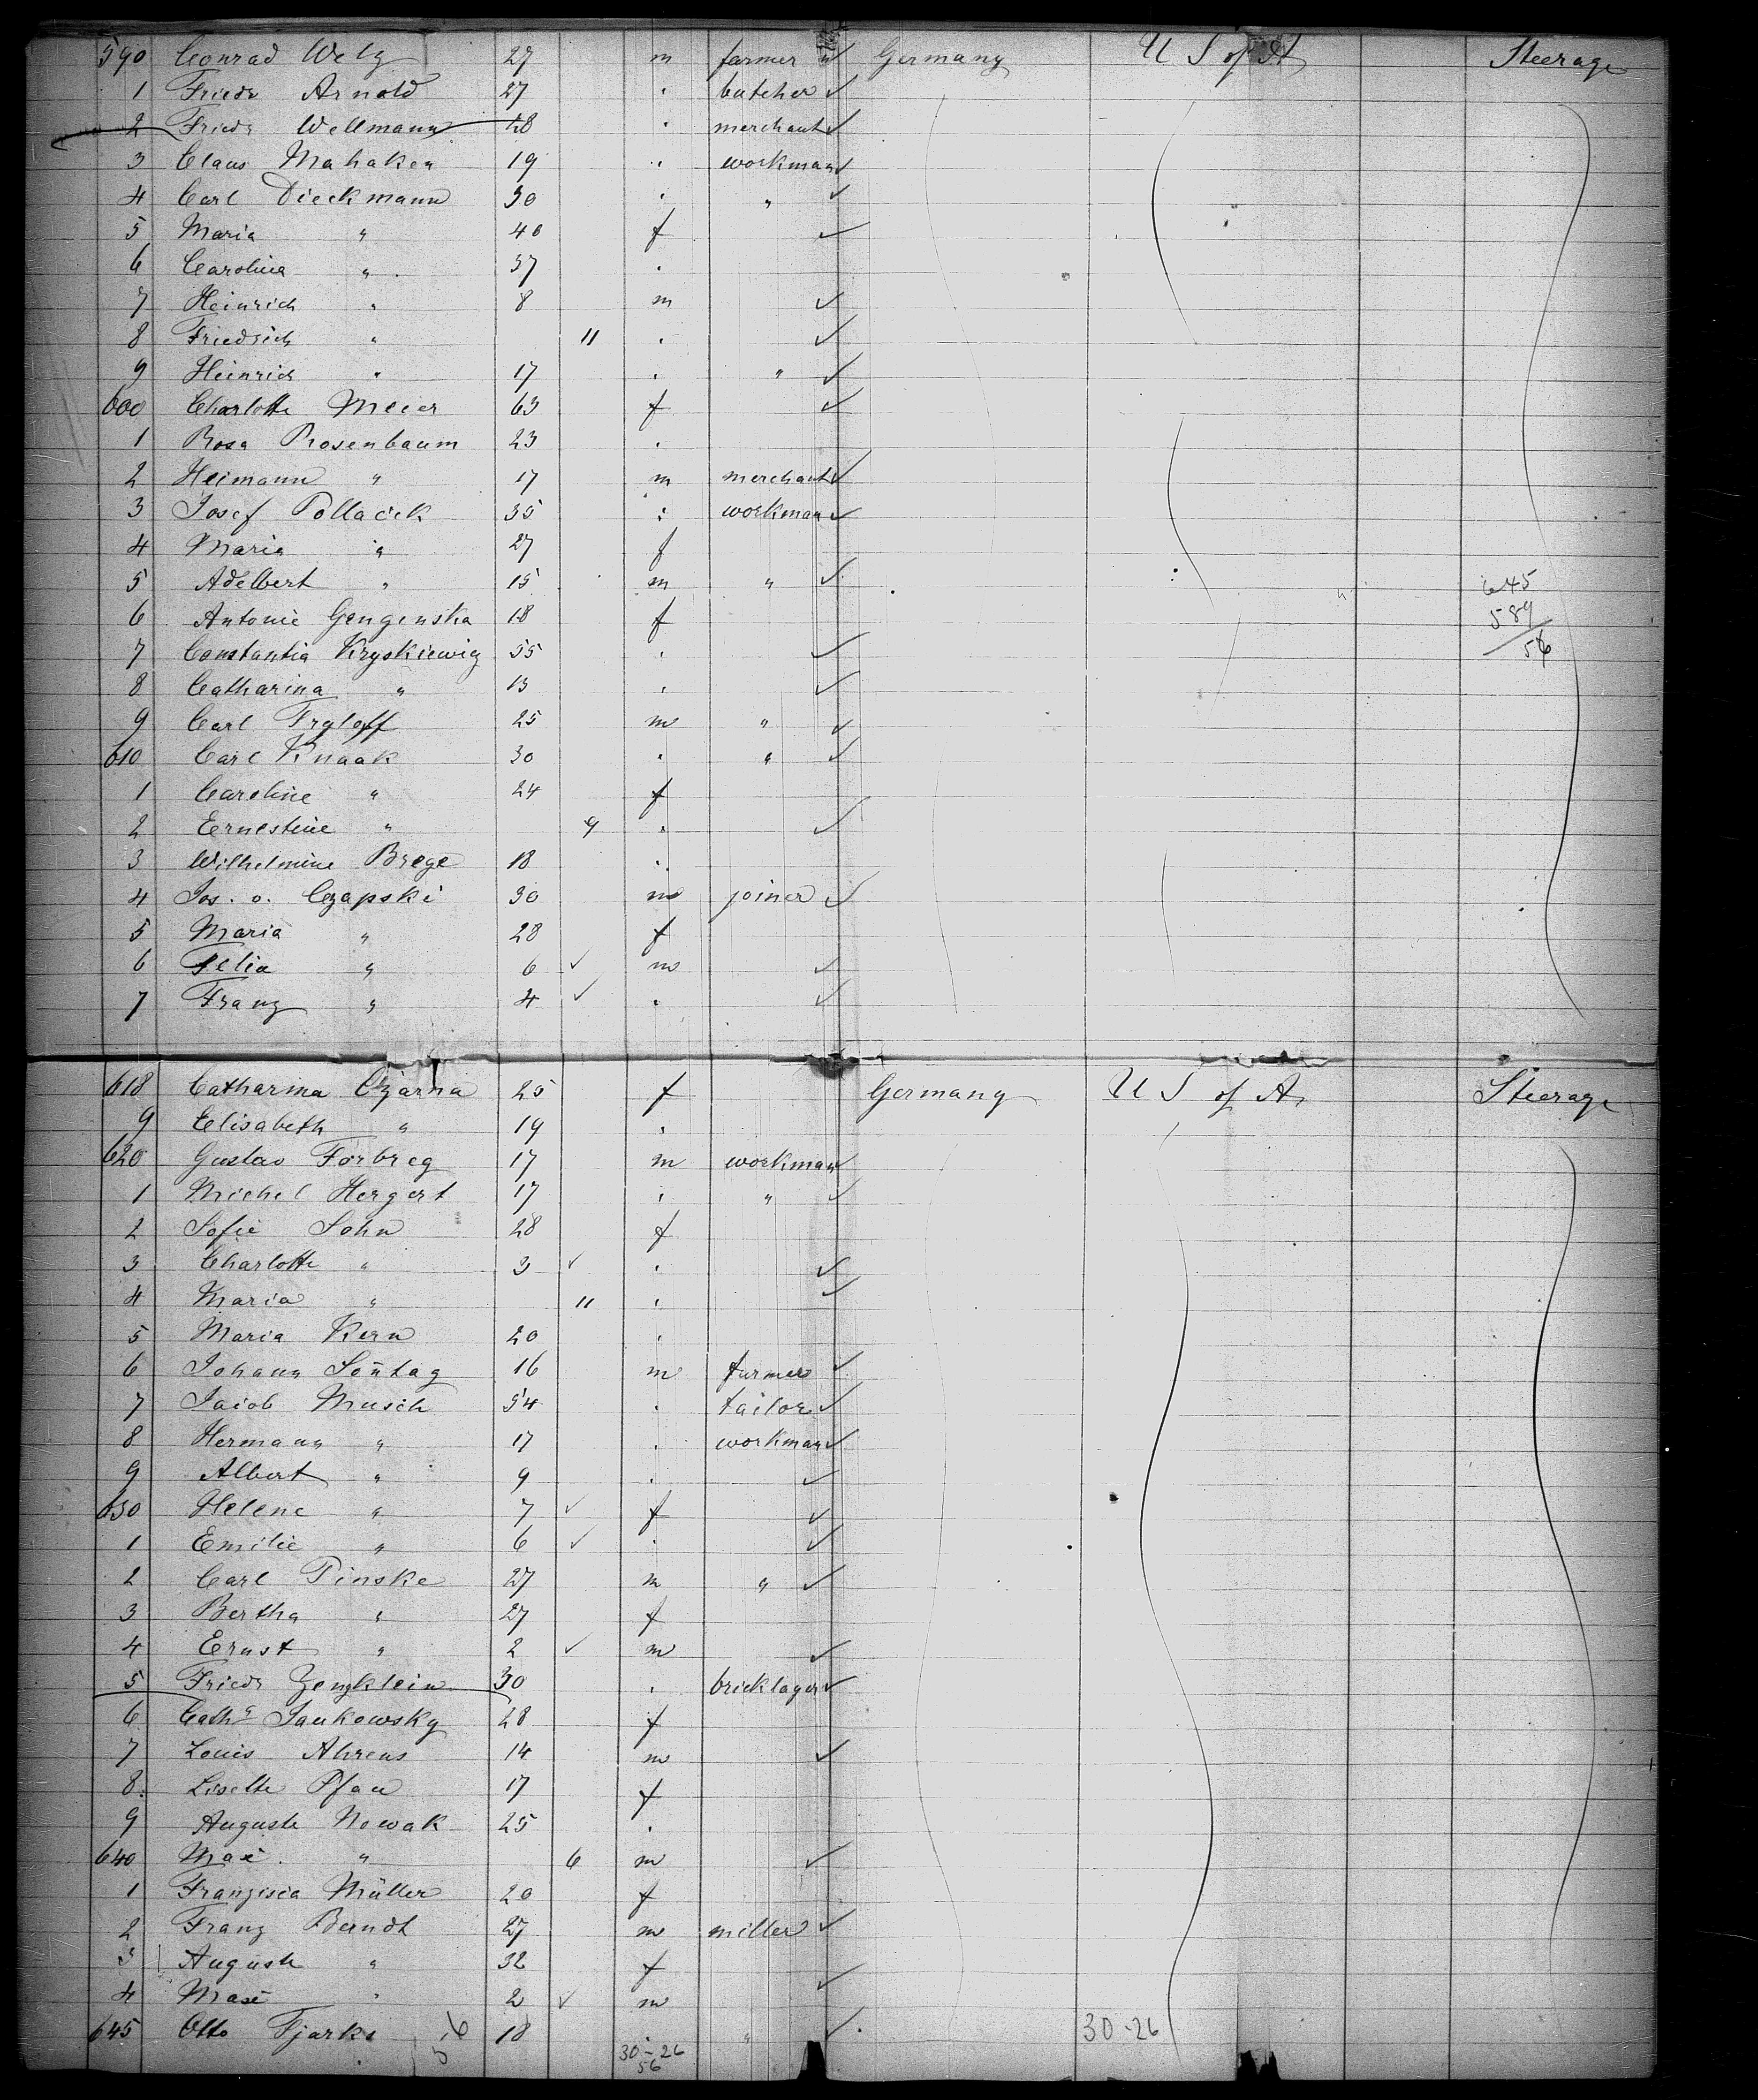 590 Conrad Welz 27 m farmer Germany U S of A Steerage
1 Friedr Arnold 27 " butcher
2 Friedr Wellmann 28 " merchant
3 Claus Mahaken 19 " workman
4 Carl Dieckmann 30 " "
5 Maria " 40 f
6 Carolina " 37 "
7 Heinrich " 8 m
8 Friedrich " 11 "
9 Heinrich " 17 " "
600 Charlotte Meier 63 f
1 Rosa Rosenbaum 23 "
2 Heimann " 17 m merchant
3 Josef Pollacik 35 " workman
4 Maria " 27 f
5 Adelbert " 15 m " 645
6 Antonie Gengenska 18 f 589
7 Constantia Kryskiewiz 55 " 56
8 Catharina " 13 "
9 Carl Tryloff 25 m "
610 Carl Knaak 30 " "
1 Caroline " 24 f
2 Ernestine " 9 "
3 Wilhelmine Brege 18 "
4 Jos. o. Czapski 30 m joiner
5 Maria " 28 f
6 Felix " 6 m
7 Franz " 4 "
618 Catharina Czarna 25 f Germany U S of A. Steerage
9 Elisabeth " 19 "
620 Gustav Forbreg 17 m workman
1 Michel Hergert 17 " "
2 Sofie Sohn 28 f
3 Charlotte " 3 "
4 Maria " 11 "
5 Maria Kern 20 "
6 Johann Sontag 16 m farmer
7 Jacob Musch 54 " tailor
8 Hermann " 17 " workman
9 Albert " 9 "
630 Helene " 7 f
1 Emilie " 6 "
2 Carl Pinske 27 m "
3 Bertha " 27 f
4 Ernst " 2 m
5 Friedr Zengklein 30 " bricklayer
6 Cath Jankowsky 28 f
7 Louis Ahrens 14 m
8 Liselte Pfau 17 f
9 Auguste Nowak 25 "
640 Max " 6 m
1 Franzisca Müller 20 f
2 Franz Berndt 27 m miller
3 Auguste " 32 f
4 Max " 2 m
645 Otto Fjarks 18 " " 30-26
30-26
56